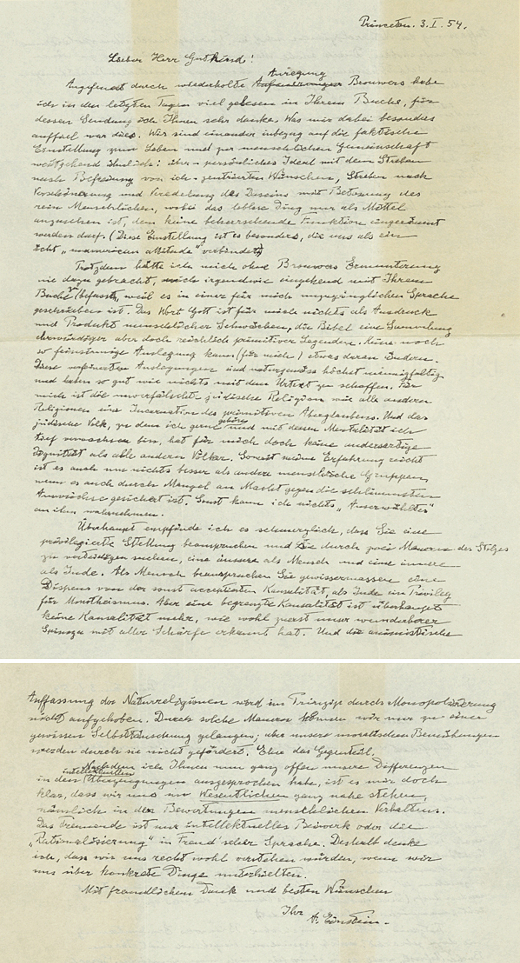 Princeton. 3. I. 54.
Lieber Herr Gutkind!
Angefeuert durch wiederholte Anregung Brouwers habe
ich in den letzten Tagen viel gelesen in Ihrem Buche, für
dessen Sendung ich Ihnen sehr danke. Was mir dabei besonders
auffiel war dies. Wir sind einander inbezug auf die faktische
Einstellung zum Leben und zur menschlichen Gemeinschaft
weitgehend ähnlich: über-persönliches Ideal mit dem Streben
nach Befreiung von ich-zentrierten Wünschen, Streben nach
Verschönerung und Veredelung des Daseins mit Betonung des
rein Menschlichen, wobei das leblose Ding nur als Mittel
anzusehen ist, dem keine beherrschende Funktion eingeräumt
werden darf. (Diese Einstellung ist es besonders, die uns als ein
echt „unamerican attitude" verbindet)
Trotzdem hätte ich mich ohne Brouwers Ermunterung
nie dazu gebracht, mich irgendwie eingehend mit Ihrem
Buche zu befassen, weil es in einer für mich unzugänglichen Sprache
geschrieben ist. Das Wort Gott ist für mich nichts als Ausdruck
und Produkt menschlicher Schwächen, die Bibel eine Sammlung
ehrwürdiger aber doch reichlich primitiver Legenden. Keine noch
so feinsinnige Auslegung kann (für mich) etwas daran ändern.
Diese verfeinerten Auslegungen sind naturgemäss höchst mannigfaltig
und haben so gut wie nichts mit dem Urtext zu schaffen. Für
mich ist die unverfälschte jüdische Religion wie alle anderen
Religionen eine Incarnation des primitiven Aberglaubens. Und das
jüdische Volk, zu dem ich gerne gehöre und mit dessen Mentalität ich
tief verwachsen bin, hat für mich doch keine andersartige
Dignität als alle anderen Völker. Soweit meine Erfahrung reicht
ist es auch um nichts besser als andere menschliche Gruppen,
wenn es auch durch Mangel an Macht gegen die schlimmsten
Auswüchse gesichert ist. Sonst kann ich nichts „Auserwähltes"
an ihm wahrnehmen.
Überhaupt empfinde ich es schmerzlich, dass Sie eine
privilegierte Stellung beanspruchen und sie durch zwei Mauern des Stolzes
zu verteidigen suchen, eine äussere als Mensch und eine innere
als Jude. Als Mensch beanspruchen Sie gewissermassen einen
Dispens von der sonst acceptierten Kausalität, als Jude ein Privileg
für Monotheismus. Aber eine begrenzte Kausalität ist überhaupt
keine Kausalität mehr, wie wohl zuerst unser wunderbarer
Spinoza mit aller Schärfe erkannt hat. Und die animistische
Auffassung der Naturreligionen wird im Prinzip durch Monopolisierung
nicht aufgehoben. Durch solche Mauern können wir nur zu einer
gewissen Selbsttäuschung gelangen; aber unsere moralischen Bemühungen
werden durch sie nicht gefördert. Eher das Gegenteil.
Nachdem ich Ihnen nun ganz offen unsere Differenzen
in den intellektuellen Überzeugungen ausgesprochen habe, ist es mir doch
klar, dass wir uns im Wesentlichen ganz nahe stehen,
nämlich in den Bewertungen menschlichen Verhaltens.
Das Trennende ist nur intellektuelles Beiwerk oder die
„Rationalisierung" in Freud'scher Sprache. Deshalb denke
ich, dass wir uns recht wohl verstehen würden, wenn wir
uns über konkrete Dinge unterhielten.
Mit freundlichem Dank und besten Wünschen
Ihr
A. Einstein.